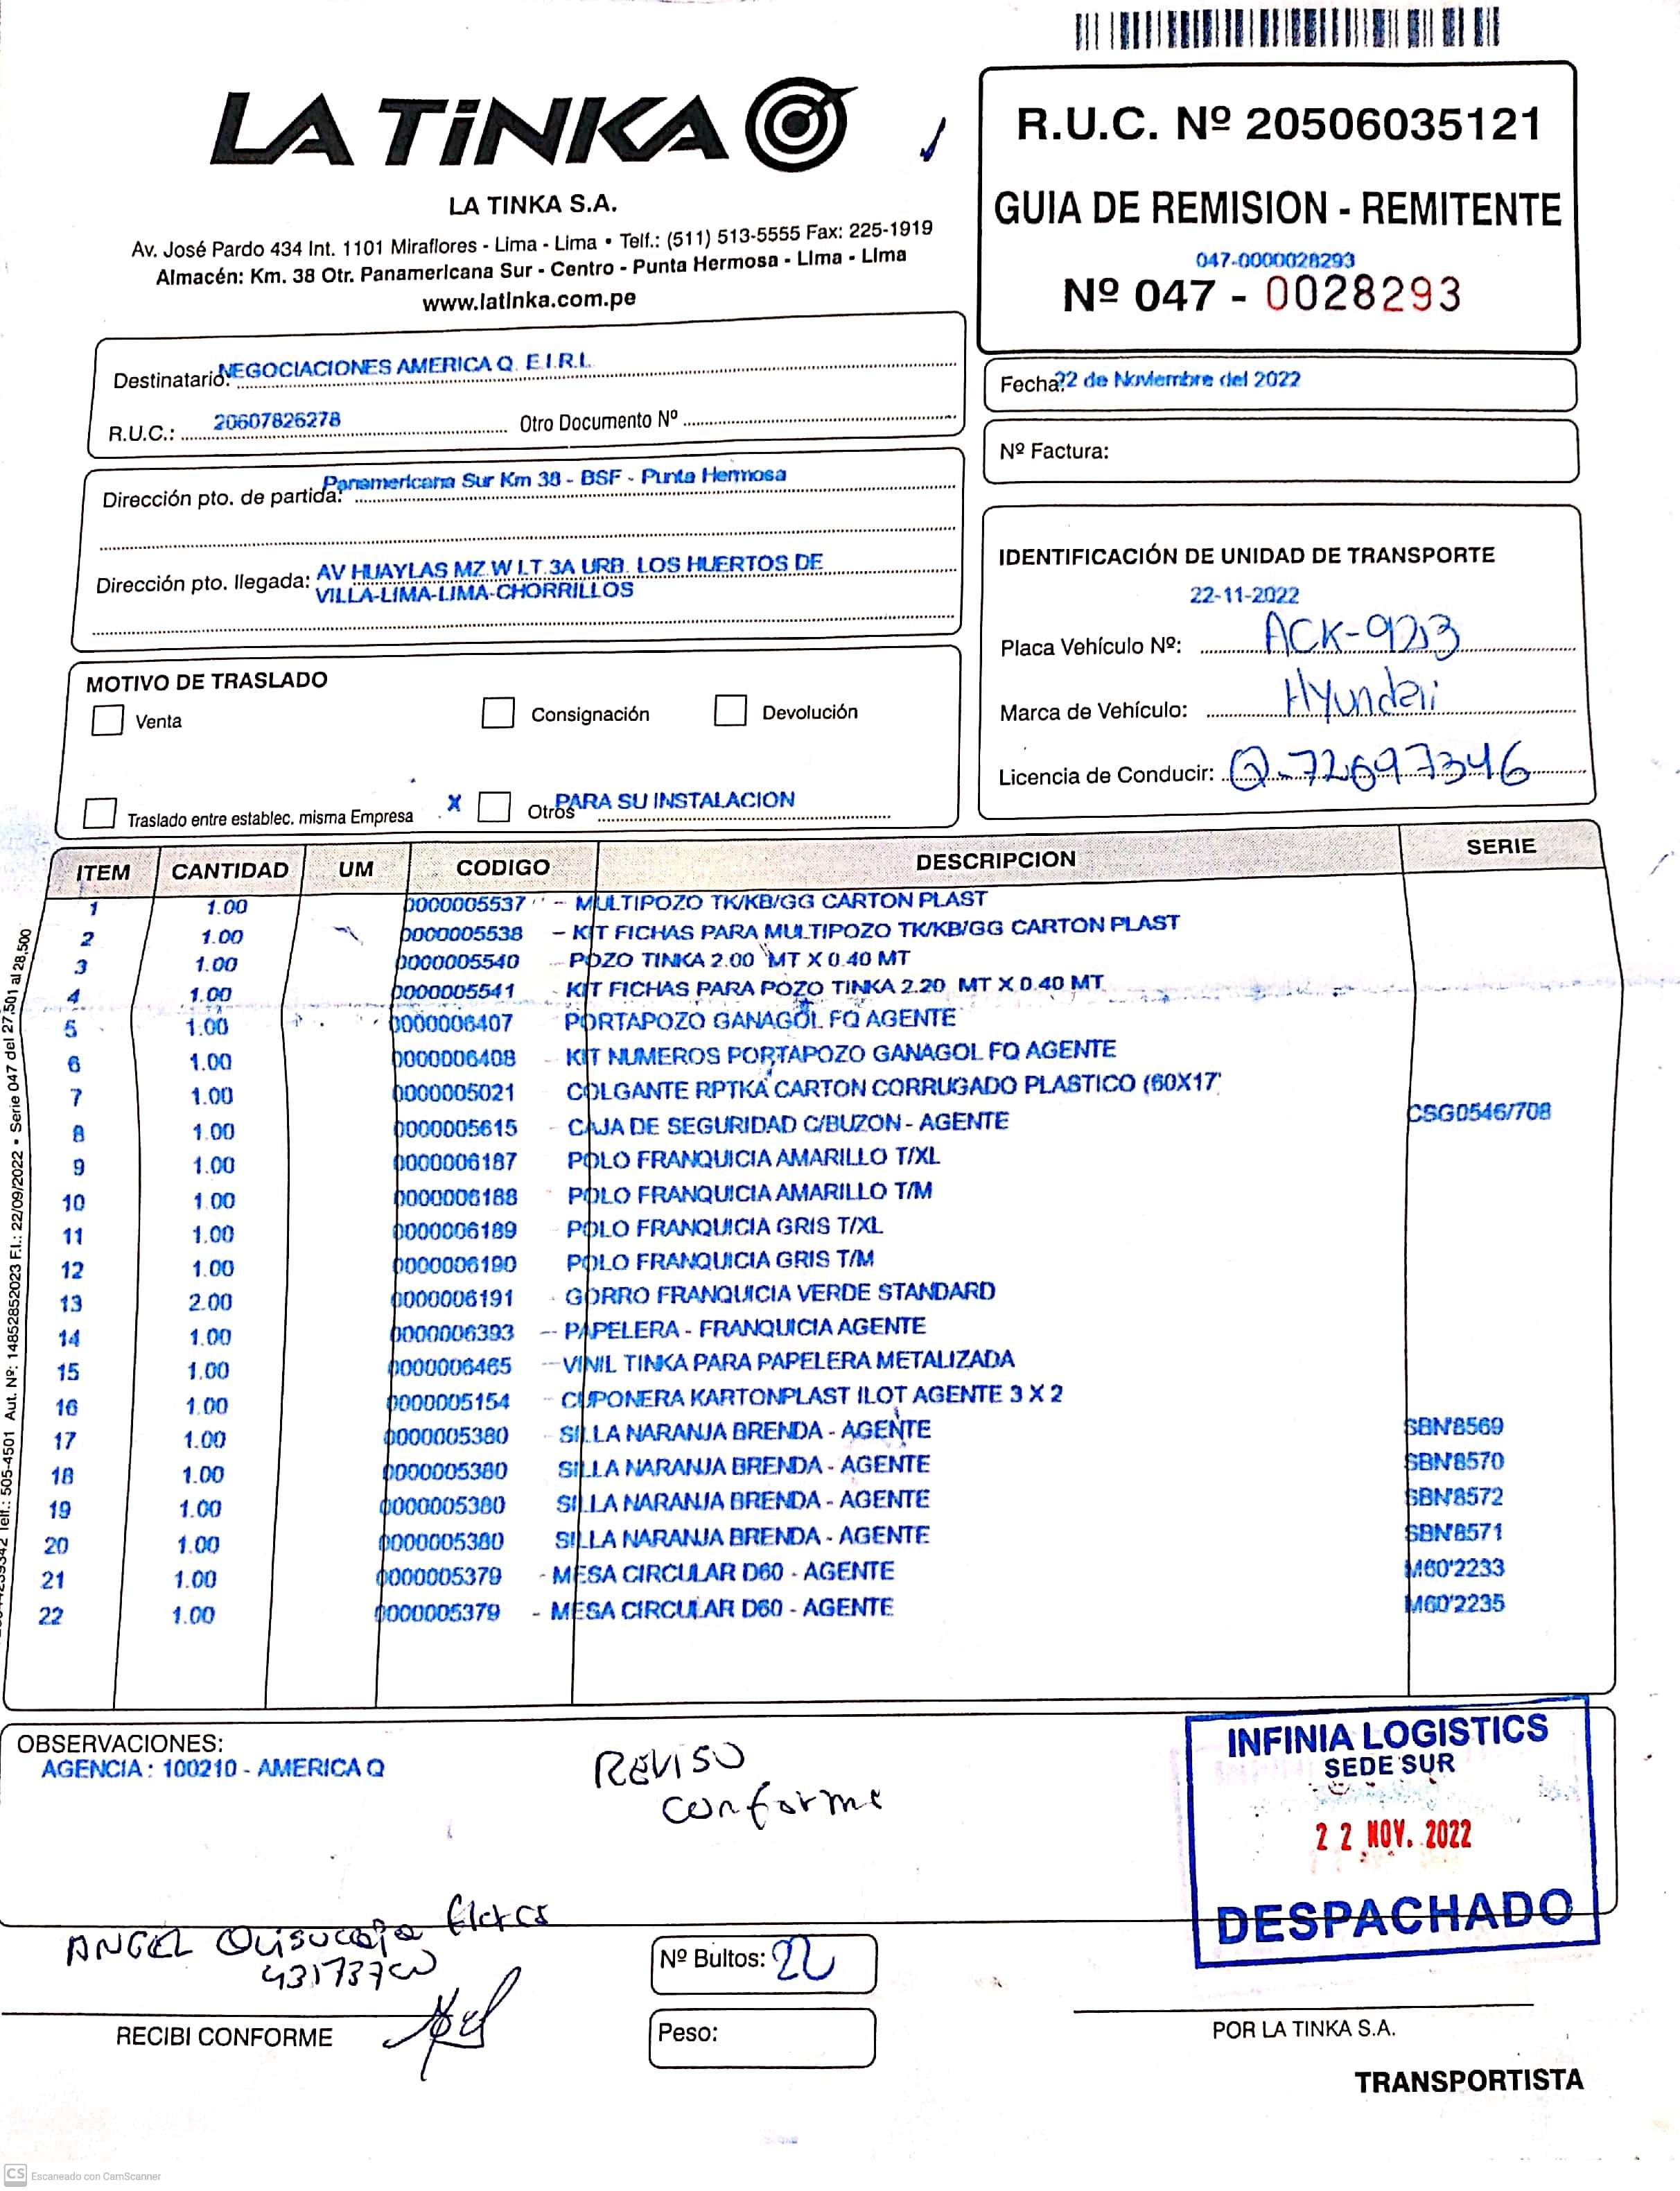 LA TiNKA
LA TINKA S.A.
Av. José Pardo 434 Int. 1101 Miraflores - Lima - Lima • Telf.: (511) 513-5555 Fax: 225-1919
Almacén: Km. 38 Otr. Panamericana Sur - Centro - Punta Hermosa - Lima - Lima
www.latinka.com.pe
R.U.C. Nº 20506035121
GUIA DE REMISION - REMITENTE
047-0000028293
Nº 047 - 0028293
Destinatario: NEGOCIACIONES AMERICA Q. E.I.R.L.
R.U.C.: 20607826278 Otro Documento Nº
Fecha: 22 de Noviembre del 2022
Nº Factura:
Dirección pto. de partida: Panamericana Sur Km 38 - BSF - Punta Hermosa
Dirección pto. llegada: AV HUAYLAS MZ W LT 3A URB. LOS HUERTOS DE
VILLA-LIMA-LIMA-CHORRILLOS
IDENTIFICACIÓN DE UNIDAD DE TRANSPORTE
22-11-2022
Placa Vehículo Nº:
Marca de Vehículo: Hyundai
Licencia de Conducir: Q-72697346
MOTIVO DE TRASLADO
Venta Consignación Devolución
Traslado entre establec. misma Empresa X Otros PARA SU INSTALACION
ITEM CANTIDAD UM CODIGO DESCRIPCION SERIE
1 1.00 0000005537 - MULTIPOZO TK/KB/GG CARTON PLAST
2 1.00 0000005538 - KIT FICHAS PARA MULTIPOZO TK/KB/GG CARTON PLAST
3 1.00 0000005540 - POZO TINKA 2.00 MT X 0.40 MT
4 1.00 0000005541 - KIT FICHAS PARA POZO TINKA 2.20 MT X 0.40 MT
5 1.00 0000006407 PORTAPOZO GANAGOL FQ AGENTE
6 1.00 0000006408 - KIT NUMEROS PORTAPOZO GANAGOL FQ AGENTE
7 1.00 0000005021 - COLGANTE RPTKA CARTON CORRUGADO PLASTICO (60X17
8 1.00 0000005615 - CAJA DE SEGURIDAD C/BUZON - AGENTE CSG0546/708
9 1.00 0000006187 POLO FRANQUICIA AMARILLO T/XL
10 1.00 0000006188 - POLO FRANQUICIA AMARILLO T/M
11 1.00 0000006189 - POLO FRANQUICIA GRIS T/XL
12 1.00 0000006190 POLO FRANQUICIA GRIS T/M
13 2.00 0000006191 - GORRO FRANQUICIA VERDE STANDARD
14 1.00 0000006393 - PAPELERA - FRANQUICIA AGENTE
15 1.00 0000006465 - VINIL TINKA PARA PAPELERA METALIZADA
16 1.00 0000005154 - CUPONERA KARTONPLAST ILOT AGENTE 3 X 2
17 1.00 0000005380 - SILLA NARANJA BRENDA - AGENTE SBN'8569
18 1.00 0000005380 SILLA NARANJA BRENDA - AGENTE SBN'8570
19 1.00 0000005380 SILLA NARANJA BRENDA - AGENTE SBN'8572
20 1.00 0000005380 SILLA NARANJA BRENDA - AGENTE SBN'8571
21 1.00 0000005379 - MESA CIRCULAR D60 - AGENTE M60'2233
22 1.00 0000005379 - MESA CIRCULAR D60 - AGENTE M60'2235
505-4501 Aut. Nº: 14852852023 F.I.: 22/09/2022 • Serie 047 del 27,501 al 28,500
OBSERVACIONES:
AGENCIA : 100210 - AMERICA Q
REVISO
conforme
INFINIA LOGISTICS
SEDE SUR
22 NOV. 2022
DESPACHADO
ANGEL
RECIBI CONFORME
Nº Bultos: 22
Peso:
POR LA TINKA S.A.
TRANSPORTISTA
CS Escaneado con CamScanner